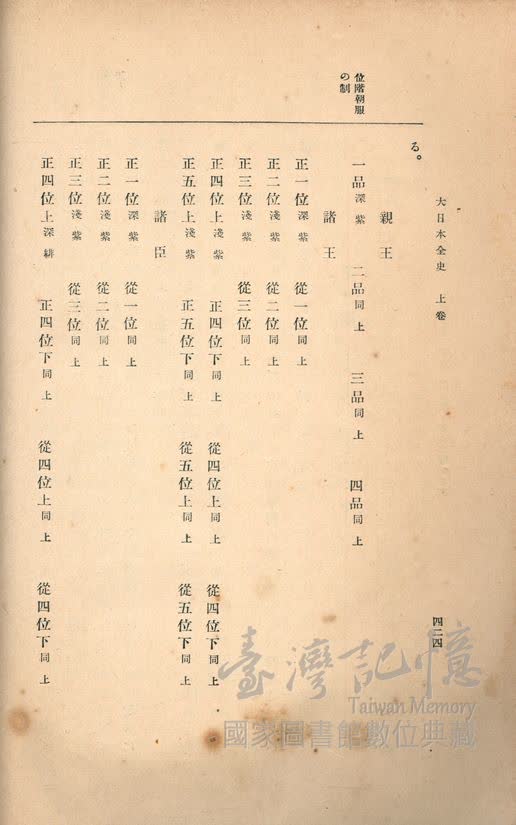 大日本全史　上卷
四二四
位階朝服
の制
る。
親王
一品深紫　二品同上　三品同上　四品同上
諸王
正一位深紫　從一位同上
正二位淺紫　從二位同上
正三位淺紫　從三位同上
正四位上淺紫　正四位下同上　從四位上同上　從四位下同上
正五位上淺紫　正五位下同上　從五位上同上　從五位下同上
諸臣
正一位深紫　從一位同上
正二位淺紫　從二位同上
正三位淺紫　從三位同上
正四位上深緋　正四位下同上　從四位上同上　從四位下同上
臺灣記憶
Taiwan Memory
國家圖書館數位典藏